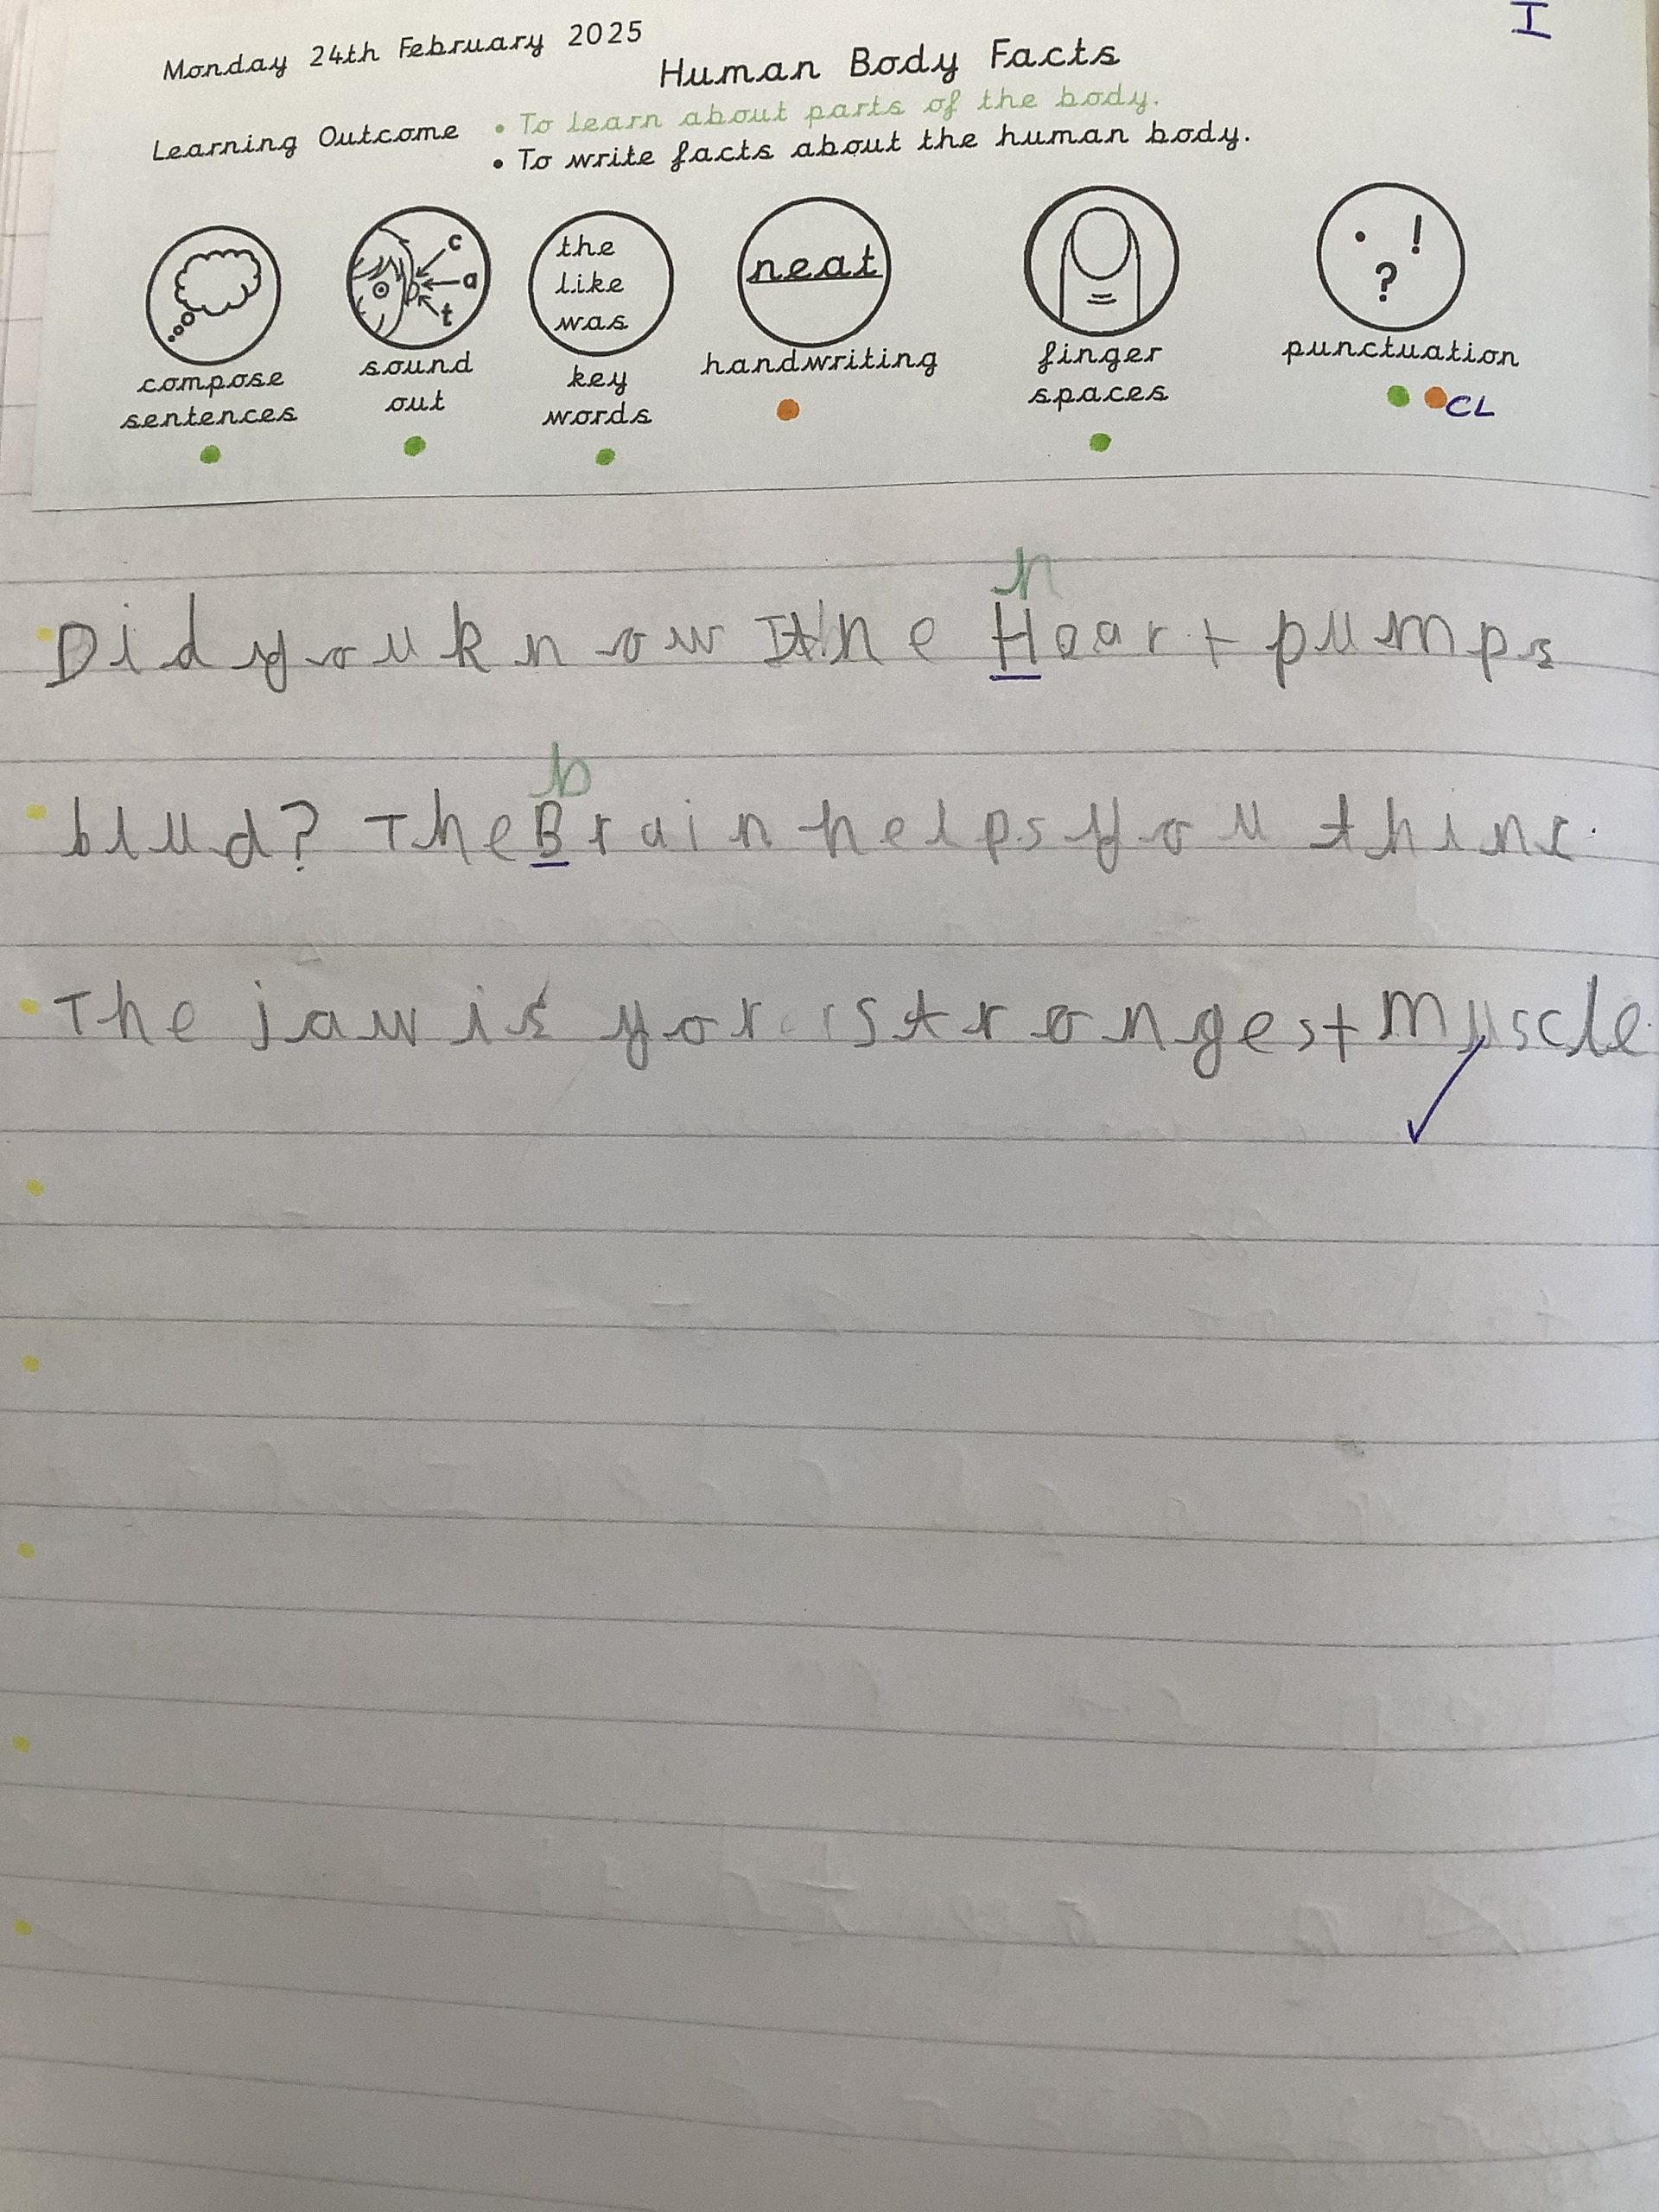 I
Monday 24th February 2025
Human Body Facts
Learning Outcome
• To learn about parts of the body.
• To write facts about the human body.
c
a
t
the
like
was
neat
. !
?
compose
sentences
sound
out
key
words
handwriting
finger
spaces
punctuation
CL
h
Did you know the Heart pumps
b
blud? The Brain helps you think.
The jaw is yor strongest muscle.